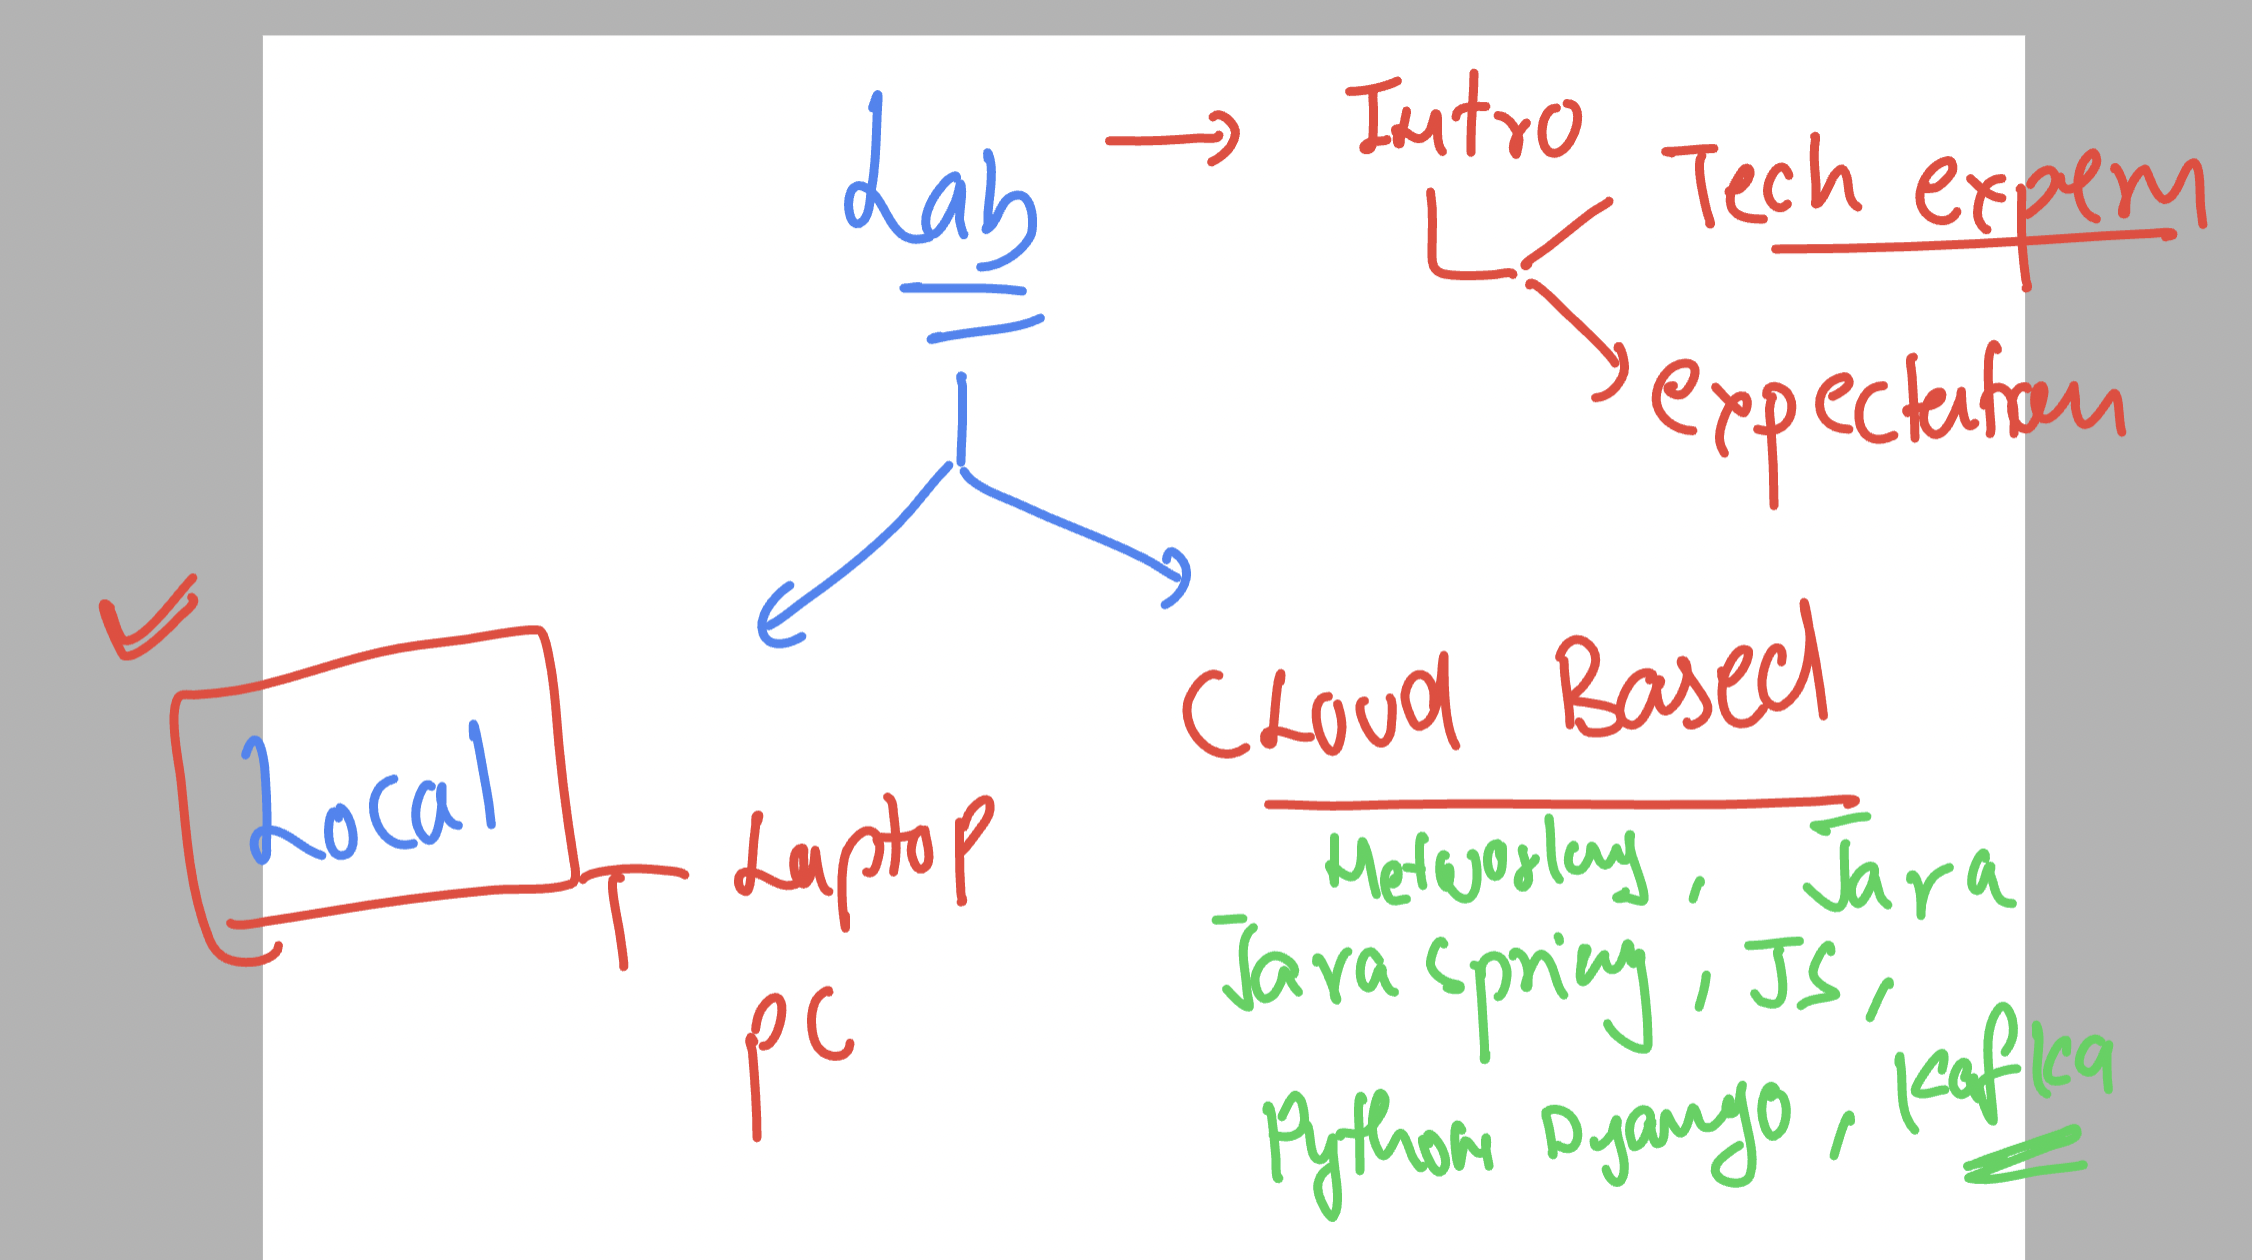 Lab → Intro
Tech expern
expectation
Local
Cloud Based
Laptop
PC
Java
Java Spring, JS,
Python Django, Kafka